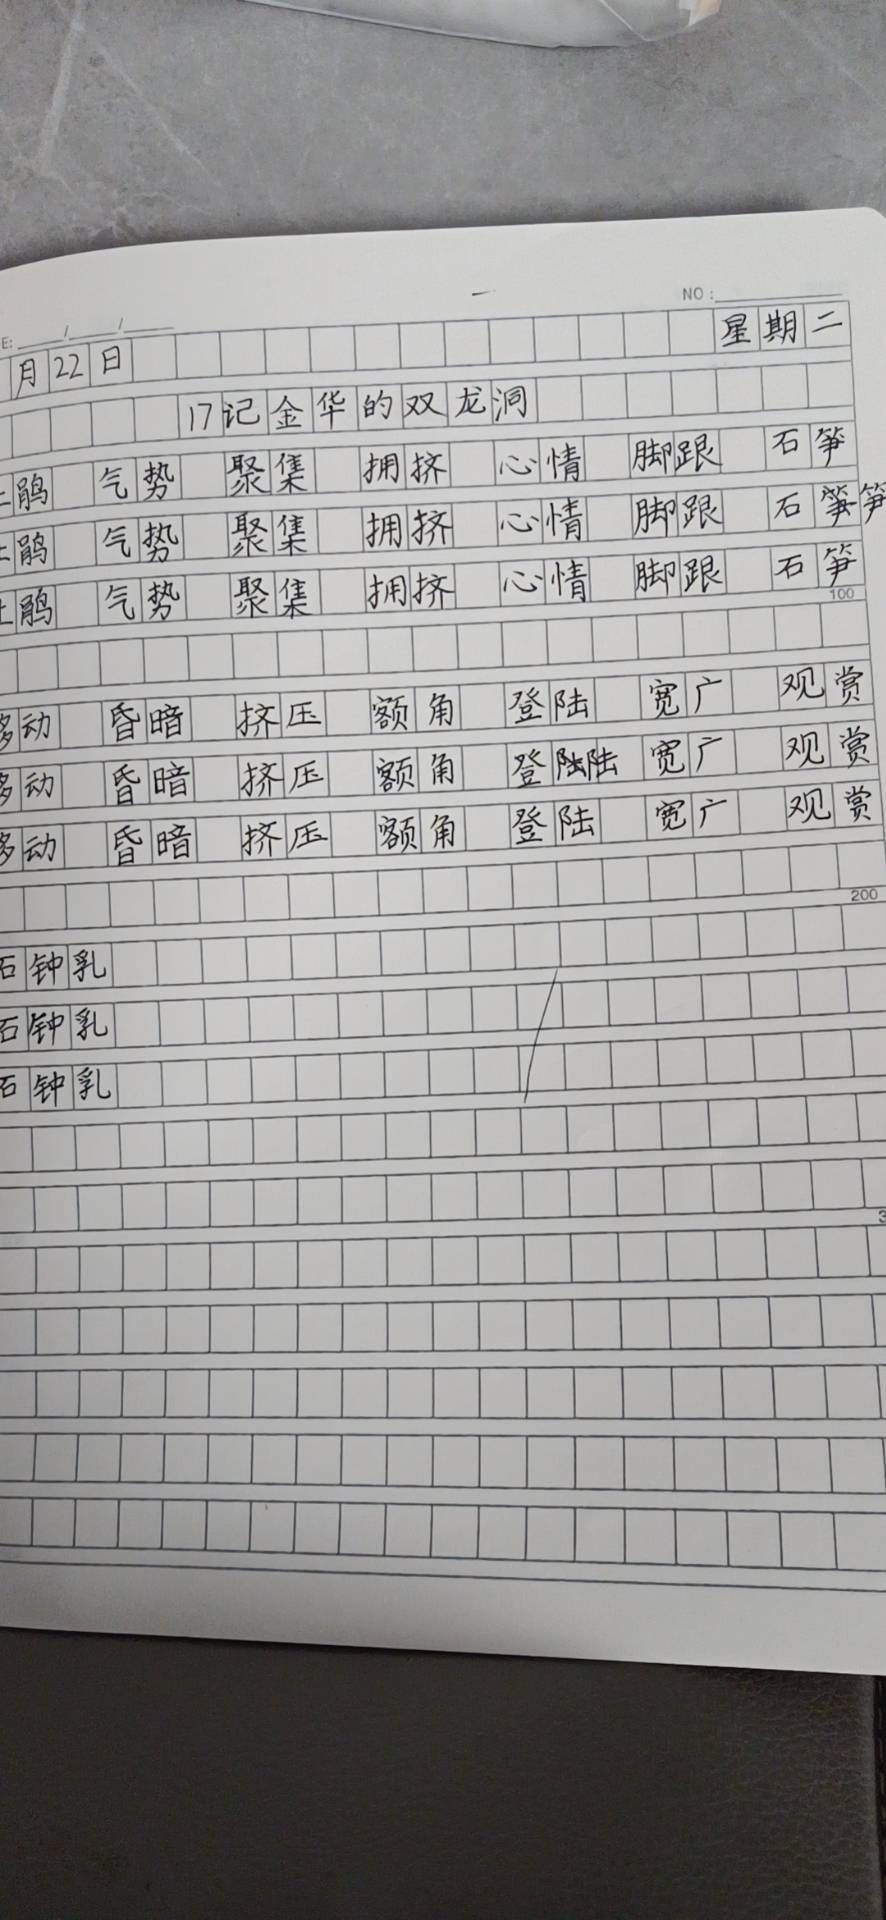 E: / / NO:
月22日 星期二
17记金华的双龙洞
鹃 气势 聚集 拥挤 心情 脚跟 石笋
鹃 气势 聚集 拥挤 心情 脚跟 石笋笋
鹃 气势 聚集 拥挤 心情 脚跟 石笋
100
移动 昏暗 挤压 额角 登陆 宽广 观赏
移动 昏暗 挤压 额角 登陆陆 宽广 观赏
移动 昏暗 挤压 额角 登陆 宽广 观赏
200
石钟乳
石钟乳
石钟乳
3